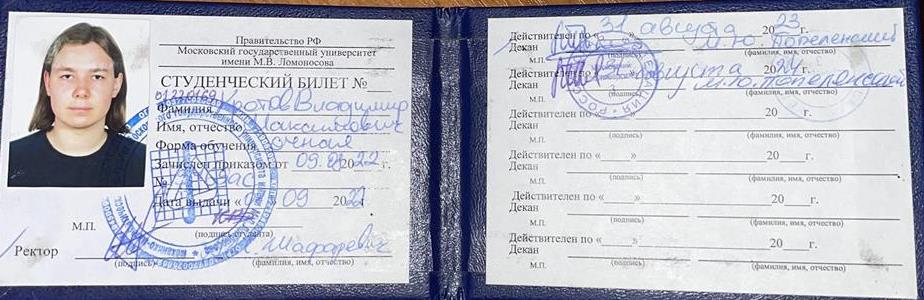 Правительство РФ
Московский государственный университет
имени М.В. Ломоносова
СТУДЕНЧЕСКИЙ БИЛЕТ №
Фамилия Кротов Владимир
Имя, отчество Максимович
Форма обучения очная
Зачислен приказом от 09. 2022
№
Дата выдачи « 09 20
М.П.
(подпись студента)
Ректор
(подпись) (фамилия, имя, отчество)
Действителен по « 31 августа 20 23 г.
Декан М.Ю.
М.П. (подпись) (фамилия, имя, отчество)
Действителен по « августа 20 24 г.
Декан М.Ю.
М.П. (подпись) (фамилия, имя, отчество)
Действителен по «___» 20___г.
Декан
М.П. (подпись) (фамилия, имя, отчество)
Действителен по «___» 20___г.
Декан
М.П. (подпись) (фамилия, имя, отчество)
Действителен по «___» 20___г.
Декан
М.П. (подпись) (фамилия, имя, отчество)
Действителен по «___» 20___г.
Декан
М.П. (подпись) (фамилия, имя, отчество)